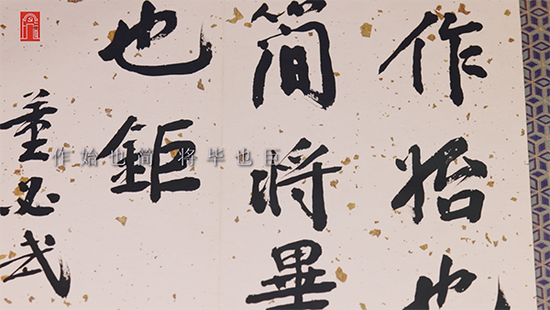 作始也
簡將畢
也鉅
董必武
作始也简 将毕也巨